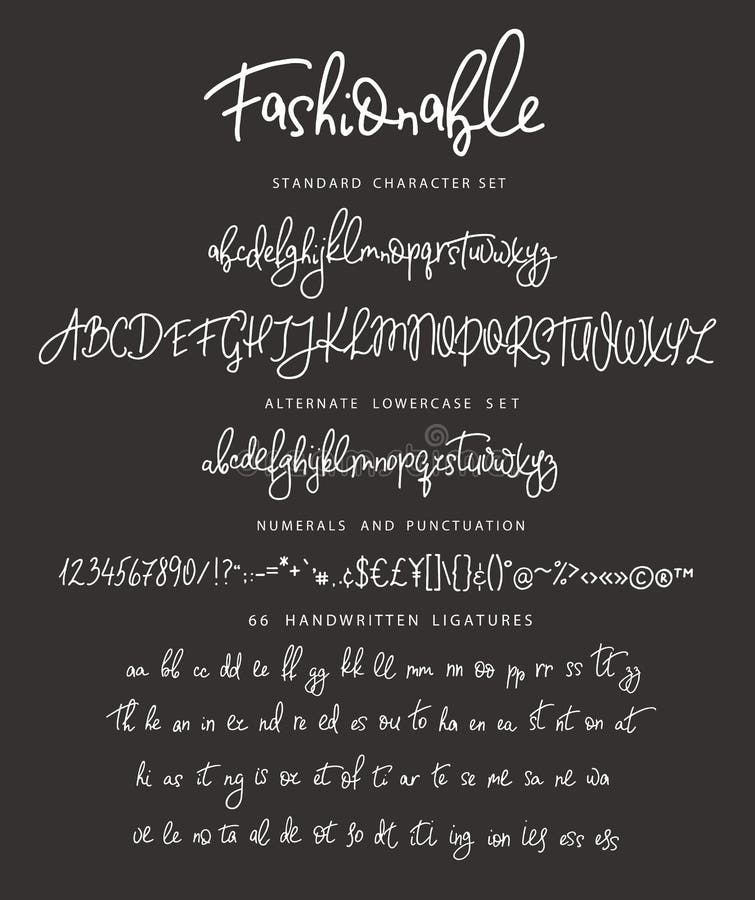 Fashionable
STANDARD CHARACTER SET
abcdefghijklmnopqrstuvwxyz
ABCDEFGHIJKLMNOPQRSTUVWXYZ
ALTERNATE LOWERCASE SET
abcdefghijklmnopqrstuvwxyz
NUMERALS AND PUNCTUATION
1234567890/!?“;:-=*+`’#.,¢$€£¥[]\{}&()°@~%><>«»©®™
66 HANDWRITTEN LIGATURES
aa bb cc dd ee ff gg kk ll mm nn oo pp rr ss tt zz
Th he an in er nd re ed es ou to ha en ea st nt on at
hi as it ng is or et of ti ar te se me sa ne wa
ve le no ta al de ot so dt iti ing ion ies ess ess